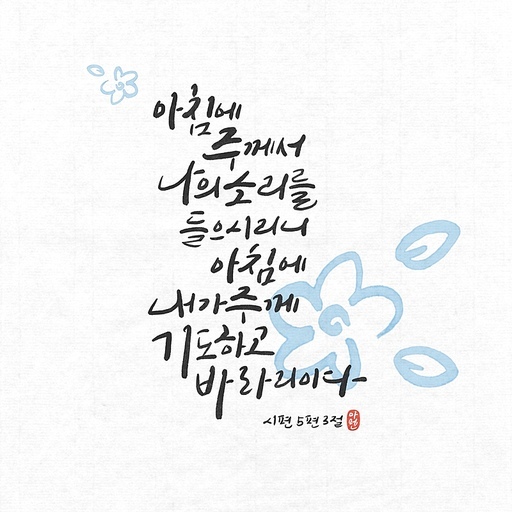 아침에
주께서
나의 소리를
들으시리니
아침에
내가 주께
기도하고
바라리이다
시편 5편 3절